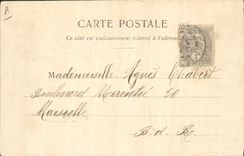 CARTE POSTALE
Ce côté est exclusivement réservé à l'adresse
Mademoiselle Agnès
Boulevard 20
Marseille
B. d. R.